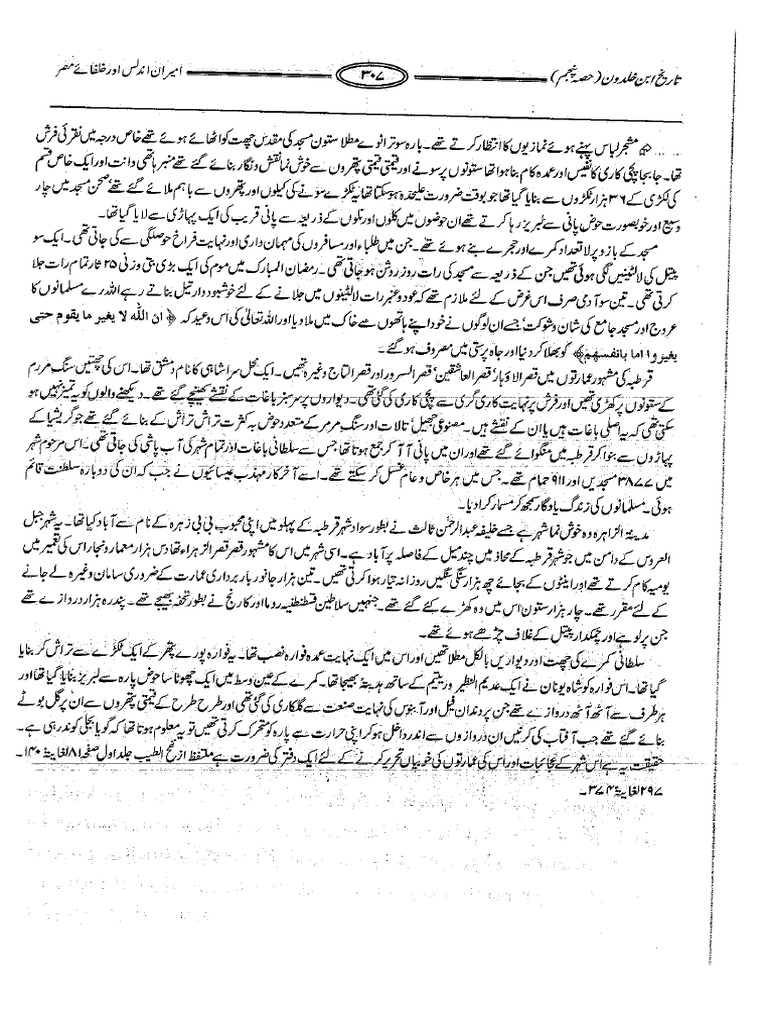 تاریخ ابن خلدون (حصہ پنجم) ۳۰۷ امیران اندلس اور خلفائے مصر
مشجر لباس پہنے ہوئے نمازیوں کا انتظار کرتے تھے۔ بارہ سو ترانوے مطلا ستون مسجد کی مقدس چھت کو اٹھائے ہوئے تھے خاص درجہ میں نقرئی فرش
تھا۔ جا بجا پچی کاری کا نفیس اور عمدہ کام بنا ہوا تھا ستونوں پر سونے اور قیمتی قیمتی پتھروں سے خوش نما نقش و نگار بنائے گئے تھے منبر ہاتھی دانت اور ایک خاص قسم
کی لکڑی کے ۳۶ ہزار ٹکڑوں سے بنایا گیا تھا جو بوقت ضرورت علیحدہ ہو سکتا تھا یہ ٹکڑے سونے کی کیلوں اور پتھروں سے باہم ملائے گئے تھے صحن مسجد میں چار
وسیع اور خوبصورت حوض پانی سے لبریز رہا کرتے تھے ان حوضوں میں کلوں اور نلکوں کے ذریعہ سے پانی قریب کی ایک پہاڑی سے لایا گیا تھا۔
مسجد کے بازو پر لا تعداد کمرے اور حجرے بنے ہوئے تھے۔ جن میں طلباء اور مسافروں کی مہمان داری اور نہایت فراخ حوصلگی سے کی جاتی تھی۔ ایک سو
پیتل کی لالٹینیں لگی ہوئی تھیں جن کے ذریعہ سے مسجد کی رات روز روشن ہو جاتی تھی۔ رمضان المبارک میں موم کی ایک بڑی بتی وزنی ۲۵ ثار تمام رات جلا
کرتی تھی۔ تین سو آدمی صرف اس غرض کے لئے ملازم تھے کہ عود و عنبر رات لالٹینوں میں جلانے کے لئے خوشبودار تیل بناتے رہے اللہ رے مسلمانوں کا
عروج اور مسجد جامع کی شان و شوکت' جسے ان لوگوں نے خود اپنے ہاتھوں سے خاک میں ملا دیا اور اللہ تعالیٰ کی اس وعید کہ ﴿ ان الله لا یغیر ما بقوم حتی
یغیروا اما بانفسهم﴾ کو بھلا کر دنیا اور جاہ پرستی میں مصروف ہو گئے۔
قرطبہ کی مشہور عمارتوں میں قصر الاؤہار' قصر العاشقین' قصر السرور اور قصر التاج وغیرہ تھیں۔ ایک محل سرا شاہی کا نام دمشق تھا۔ اس کی چھتیں سنگ مرمر
کے ستونوں پر کھڑی تھیں اور فرش پر نہایت کاری گری سے پچی کاری کی گئی تھی۔ دیواروں پر سرسبز باغات کے نقشے کھینچے گئے تھے۔ دیکھنے والوں کو یہ تمیز نہیں ہو
سکتی تھی کہ یہ اصلی باغات ہیں یا ان کے نقشے ہیں۔ مصنوعی جھیل' تالاب اور سنگ مرمر کے متعدد حوض بہ کثرت تراش تراش کے بنائے گئے تھے جو گریشیا کے
پہاڑوں سے بنوا کر قرطبہ میں منگوائے گئے تھے اور ان میں پانی آ آ کر جمع ہوتا تھا جس سے سلطانی باغات اور تمام شہر کی آب پاشی کی جاتی تھی۔ اس مرحوم شہر
میں ۳۸۷۷ مسجدیں اور ۹۱۱ حمام تھے۔ جس میں ہر خاص و عام غسل کر سکتے تھے۔ اسے آخر کار مہذب عیسائیوں نے جب کہ ان کی دوبارہ سلطنت قائم
ہوئی۔ مسلمانوں کی زندگی یادگار سمجھ کر مسمار کرا دیا۔
مدینۃ الزاہرہ وہ خوش نما شہر ہے جسے خلیفہ عبدالرحمٰن ثالث نے بطور سواد شہر قرطبہ کے پہلو میں اپنی محبوب بی بی زہرہ کے نام سے آباد کیا تھا۔ یہ شہر جبل
العروس کے دامن میں جو شہر قرطبہ کے محاذ میں چند میل کے فاصلہ پر آباد ہے۔ اسی شہر میں اس کا مشہور قصر قصر الزہراء تھا دس ہزار معمار و نجار اس کی تعمیر میں
یومیہ کام کرتے تھے اور اینٹوں کے بجائے چھ ہزار سنگی سنگیں روزانہ تیار ہوا کرتی تھیں۔ تین ہزار جانور بار برداری عمارت کے ضروری سامان وغیرہ لے جانے
کے لئے مقرر تھے۔ چار ہزار ستون اس میں وہ کھڑے کئے گئے تھے۔ جنہیں سلاطین قسطنطنیہ روما اور کارتج نے بطور تحفہ بھیجے تھے۔ پندرہ ہزار دروازے تھے
جن پر لوہے اور چمکدار پیتل کے غلاف چڑھے ہوئے تھے۔
سلطانی کمرے کی چھت اور دیواریں بالکل مطلا تھیں اور اس میں ایک نہایت عمدہ فوارہ نصب تھا۔ یہ فوارہ پورے پتھر کے ایک ٹکڑے سے تراش کر بنایا
گیا تھا۔ اس فوارہ کو شاہ یونان نے ایک عدیم النظیر در یتیم کے ساتھ ہدیۃً بھیجا تھا۔ کمرے کے عین وسط میں ایک چھوٹا سا حوض پارہ سے لبریز بنایا گیا تھا اور
ہر طرف سے آٹھ آٹھ دروازے تھے جن پر دندان فیل اور آبنوس کی نہایت صنعت سے گلکاری کی گئی تھی اور طرح طرح کے قیمتی پتھروں سے ان پر گل بوٹے
بنائے گئے تھے جب آفتاب کی کرنیں ان دروازوں سے اندر داخل ہو کر اپنی حرارت سے پارہ کو متحرک کرتی تھیں تو یہ معلوم ہوتا تھا کہ گویا بجلی کوند رہی ہے۔
حقیقت یہ ہے اس شہر کے عجائبات اور اس کی عمارتوں کی خوبیاں تحریر کرنے کے لئے ایک دفتر کی ضرورت ہے ملتقط از نفح الطیب جلد اول صفحہ ۸۱ لغایۃ ۱۴۰۔
۲۹۷ لغایۃ ۳۷۴۔